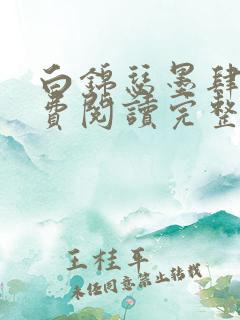 白錦瑟墨肆
費閱讀完整
王桂平
未经同意禁止转载